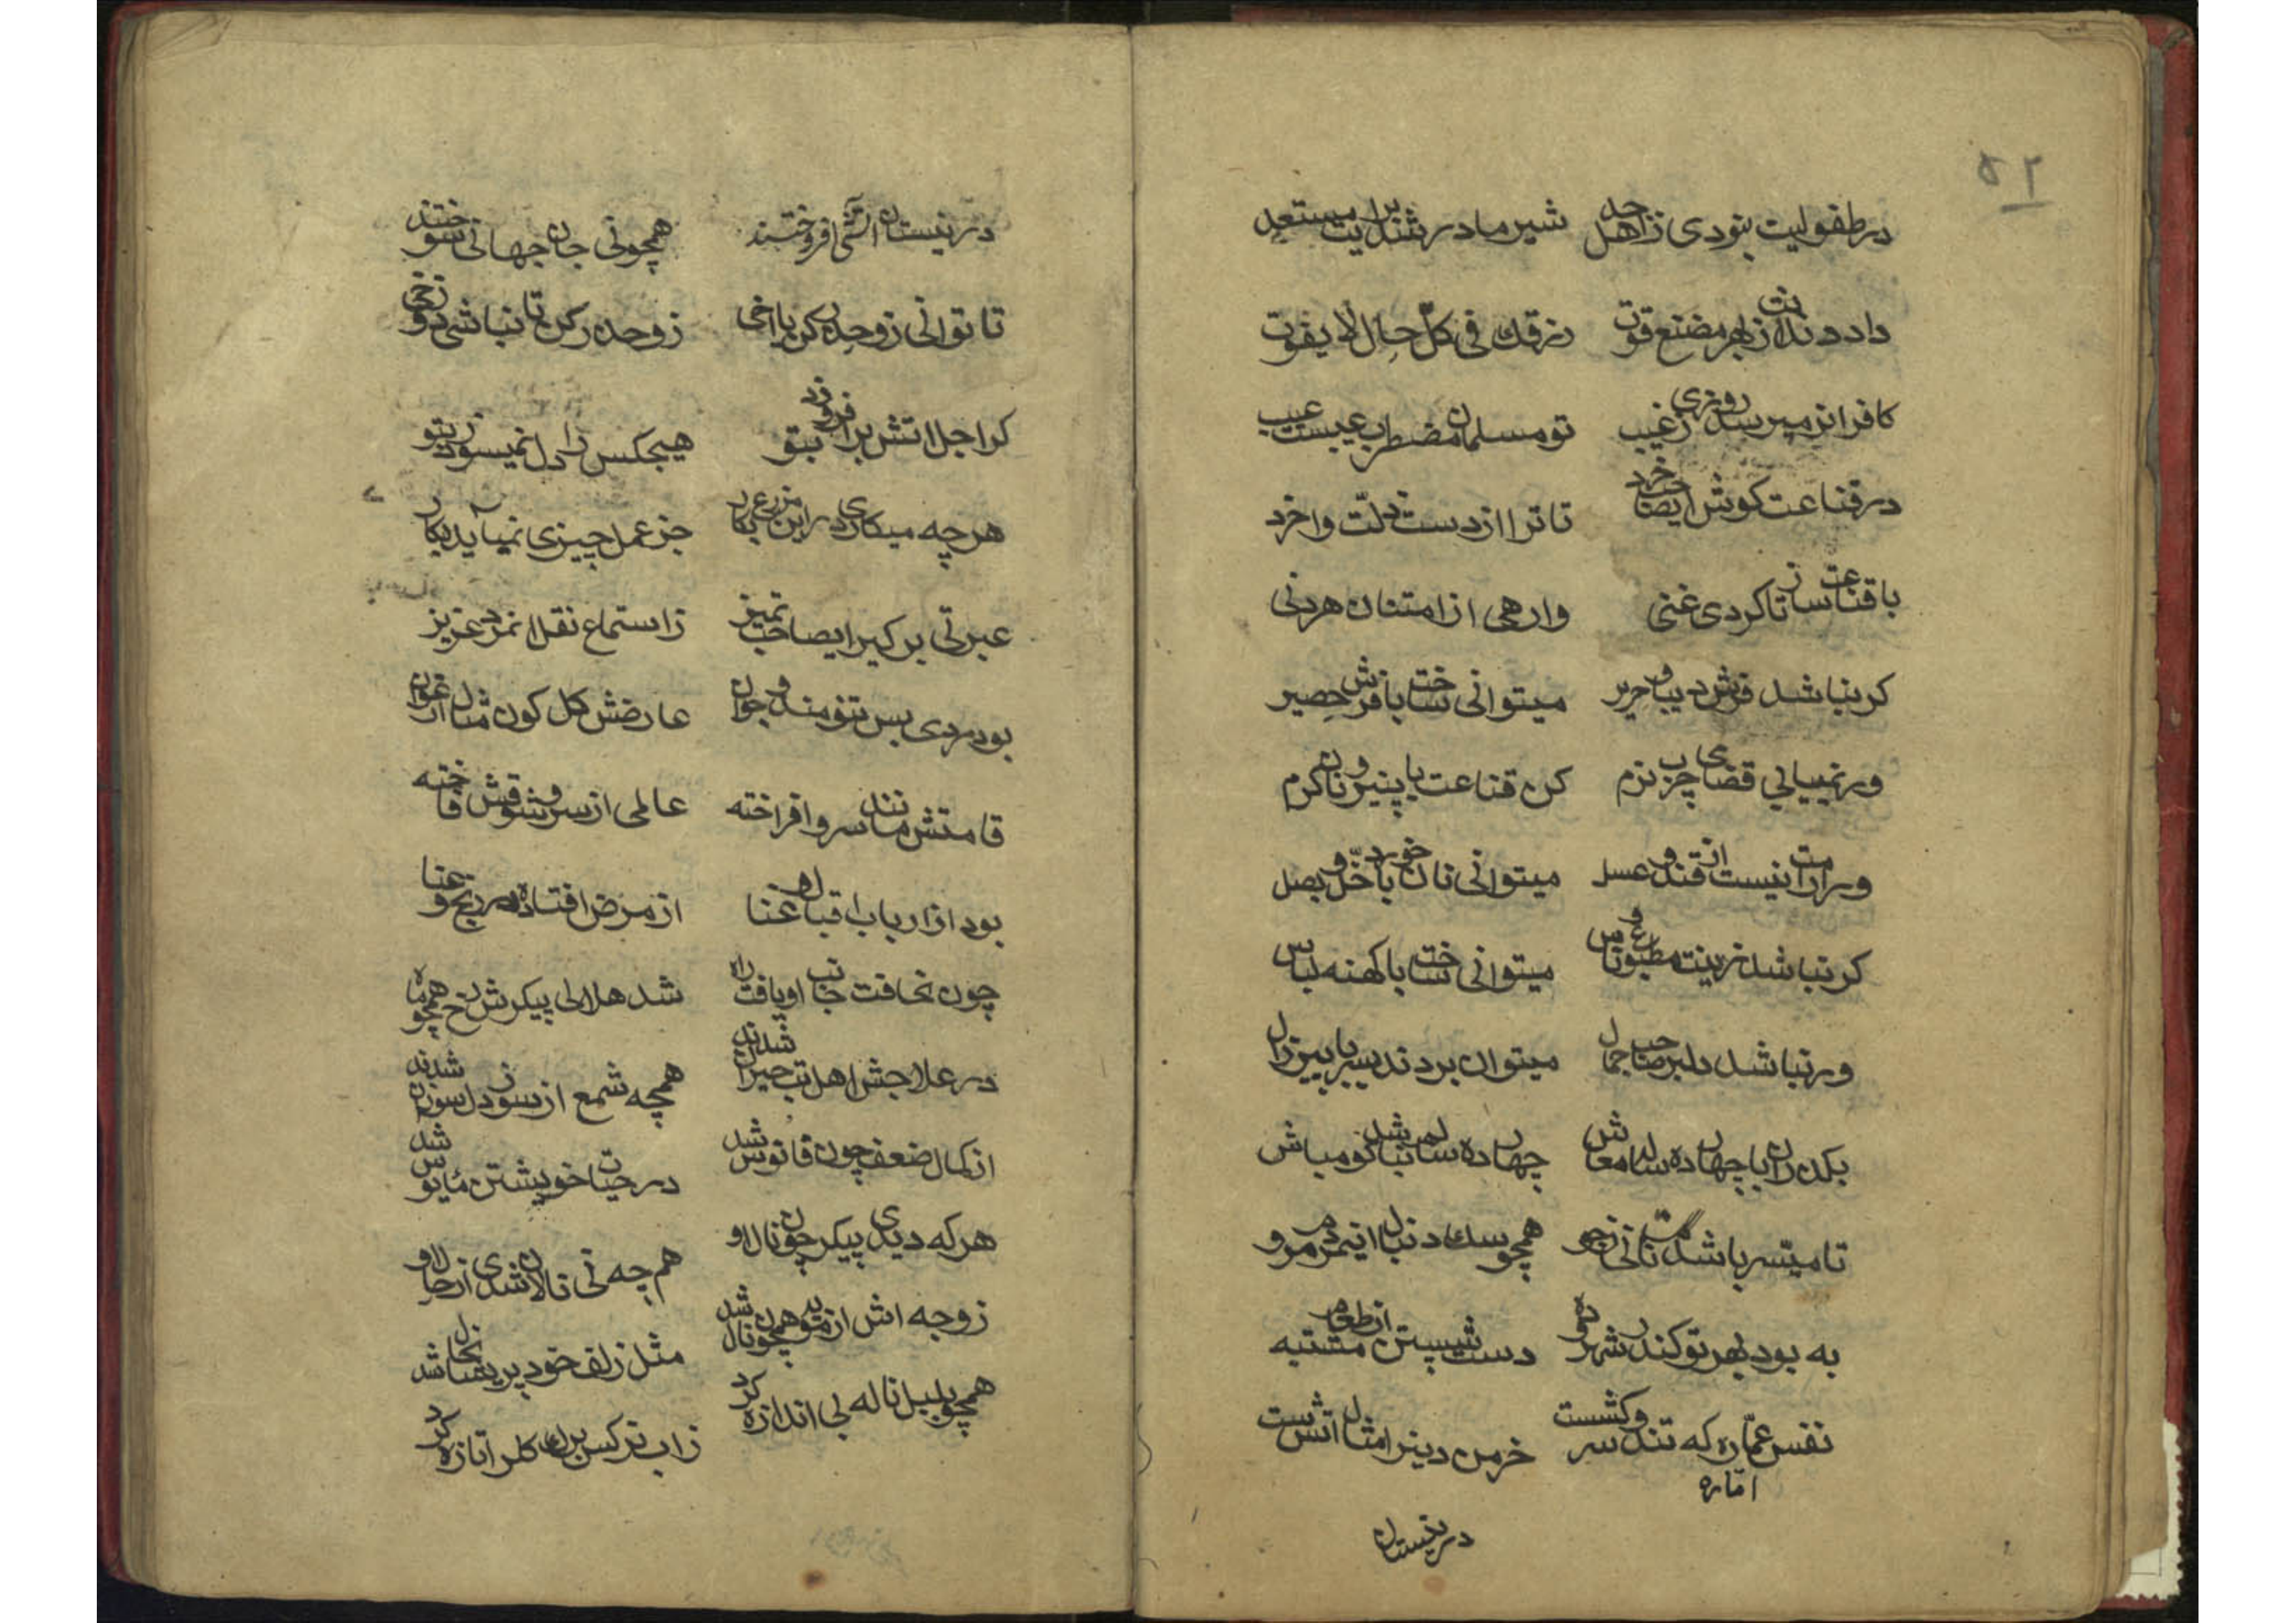 ۵۲
در طفولیت بنودی زاهل جد شیر مادر شد برایت مستعد
داد دندانت از بهر مضغ قوت رزقك فی كلّ حال لا یفوت
کافرانرا میرسد روزی زغیب تو مسلمان مضطرب عیبست عیب
در قناعت کوش ایصاحب خرد تا ترا از دست ذلّت واخرد
با قناعت ساز تا کردی غنی وارهی از امتنان هر دنی
کر نباشد فرش دیبا و حریر میتوانی ساخت با فرش حصیر
ور نمییابی قضای چرب نرم کن قناعت با پنیر و نان کرم
ور مرامت نیست از قند و عسل میتوانی نان خورد با خلّ و بصل
کر نباشد زینت مطبوع و ناس میتوانی ساخت با کهنه لباس
ور نباشد دلبر صاحب جمال میتوان بردند بسر با پیر زال
بکذران با چهار ده ساله معاش چهار ده ساله نباشد کو مباش
تا میسّر باشدت نانی زجو همچو سك دنبال اینمردم مرو
به بود بهر تو کندر شهر ده دست شستن از طعام مشتبه
نفس عمّاره که تند و سرکشست خرمن دینرا مثال اتش است
امّاره
در نیستان
در نیستان اتشی افروختند همچونی جان جهانی سوختند
تا توانی زو حذر کن یا اخی زو حذر کن تا نباشی دوزخی
کر اجل اتش برافروزد بتو هیچکس را دل نمیسوزد بتو
هر چه میکاری در این مزرع بکار جز عمل چیزی نمیآید بکار
عبرتی بر کیر ایصاحب تمیز ز استماع نقل انمرد عزیز
بود مردی بس تنومند و جوان عارضش کل کون مثال ارغوان
قامتش مانند سرو افراخته عالمی از سرو شوقش فاخته
بود از ارباب اقبال و غنا از مرض افتاده در رنج و عنا
چون نخافت جانب او یافت راه شد هلالی پیکرش رخ همچو ماه
در علاجش اهل تب حیران شدند همچه شمع از سوز دل سوزان شدند
از کمال ضعف چون فانوس شد در حیات خویشتن مایوس شد
هر که دیدی پیکر چون نال او هم چه نی نالان شدی از حال او
زوجه اش از مویه همچون نال شد مثل زلف خود پریشانحال شد
همچو بلبل ناله بی اندازه کرد زاب نرکس برك کلرا تازه کرد